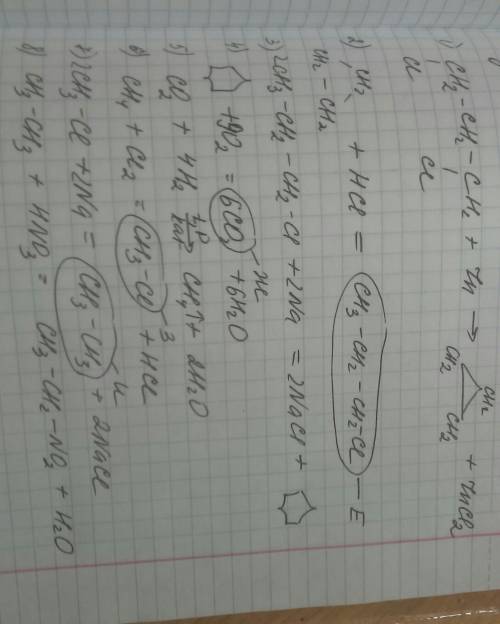 1) CH2-CH2-CH2 + Zn → CH2 CH2 CH2 + ZnCl2
Cl Cl
2) CH2 + HCl = CH3-CH2-CH2Cl — E
CH2-CH2
3) 2CH3-CH2-CH2-Cl + 2Na = 2NaCl +
4) + 9O2 = 6CO2 + 6H2O
Ж
5) CO2 + 4H2 t,p kat → CH4↑ + 2H2O
6) CH4 + Cl2 = CH3-Cl + HCl
З
7) 2CH3-Cl + 2Na = CH3-CH3 + 2NaCl
И
8) CH3-CH3 + HNO3 = CH3-CH2-NO2 + H2O